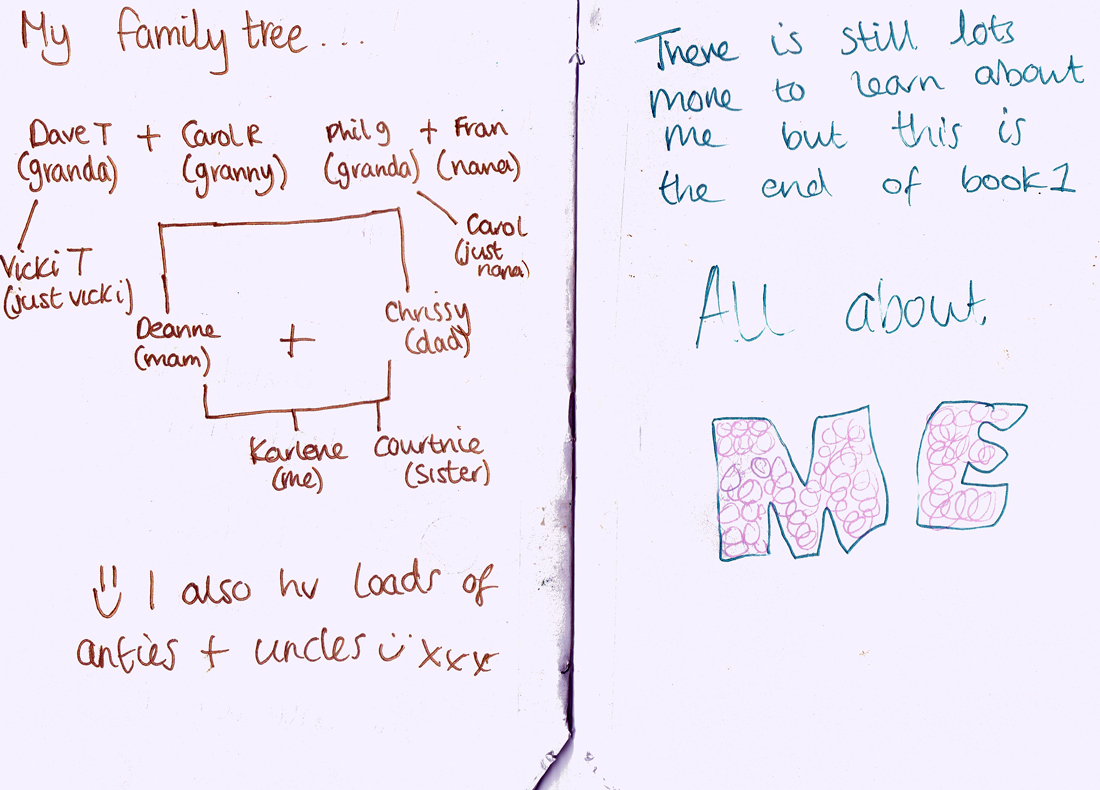 My family tree...
Dave T + Carol R Phil g + Fran
(granda) (granny) (granda) (nana)
Carol
(just
nana)
Vicki T
(just vicki)
Deanne + Chrissy
(mam) (dad)
Karlene Courtnie
(me) (sister)
I also hv loads of
anties + uncles xxx
There is still lots
more to learn about
me but this is
the end of book 1
All about.
ME